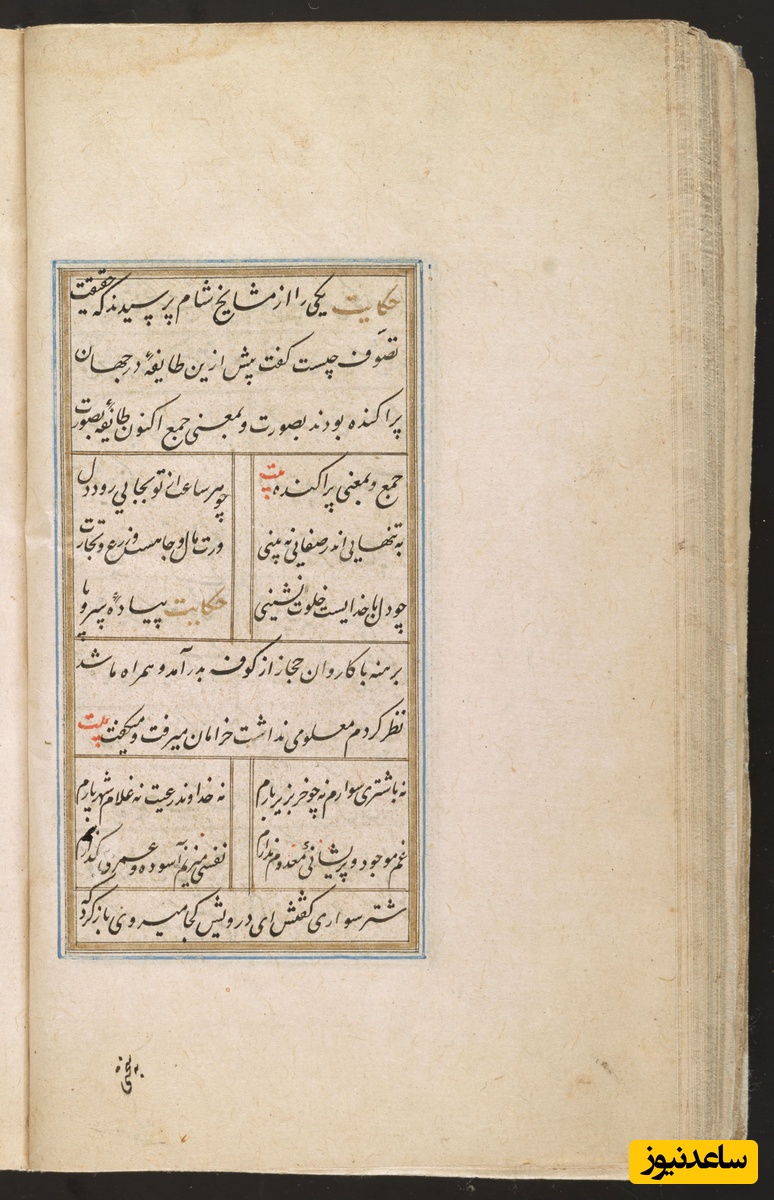 حکایت یکی را از مشایخ شام پرسیدند که حقیقت
تصوّف چیست گفت پیش ازین طایفهٔ در جهان
پراکنده بودند بصورت و بمعنی جمع اکنون طایفهٔ بصورت
جمع و بمعنی پراکنده بیت چو هر ساعت از تو بجایی رود دل
به تنهایی اندر صفایی نه بینی ورت مال و جاهست و زرع و تجارت
چو دل با خدایست خلوت نشینی حکایت پیادهٔ سر و پا
برهنه با کاروان حجاز از کوفه بدر آمد و همراه ما شد
نظر کردم معلومی نداشت خرامان میرفت و میگفت بیت
نه باشتری سوارم نه چو خر بزیر بارم نه خداوند رعیت نه غلام شهریارم
غم موجود و پریشانی معدوم ندارم نفسی میزنم آسوده و عمری گذرانم
شتر سواری گفتش ای درویش کجا میروی باز گرد که
بسختی
ساعدنیوز